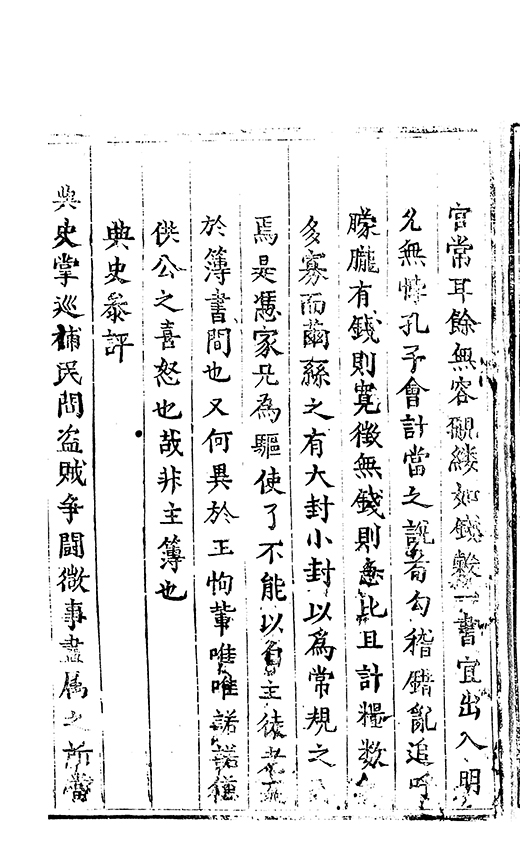 官常耳餘無容覼縷如錢穀一書宜出入明
允無悖孔子會計當之說若勾稽錯亂追呼
朦朧有錢則寬徵無錢則急比且計糧数
多寡而繭絲之有大封小封以為常規之
焉是憑家兄為驅使了不能以自主徒
於簿書間也又何異於王恂輩唯唯諾諾僅
供公之喜怒也哉非主簿也
典史叅評
典史掌巡補民間盗賊争鬬微事盡属之所當